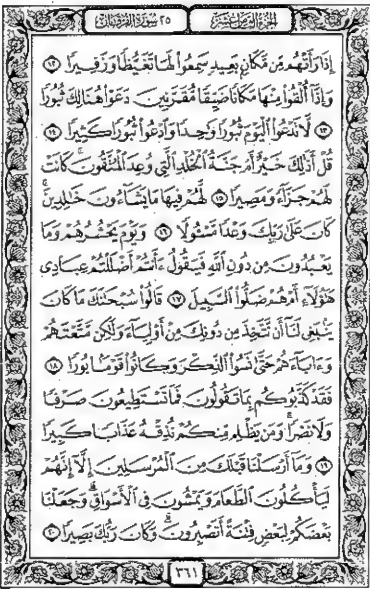 الجزء الثامن عشر ٢٥ سورة الفرقان
إِذَا رَأَتْهُم مِّن مَّكَانٍ بَعِيدٍ سَمِعُوا۟ لَهَا تَغَيُّظًا وَزَفِيرًا ١٢
وَإِذَآ أُلْقُوا۟ مِنْهَا مَكَانًا ضَيِّقًا مُّقَرَّنِينَ دَعَوْا۟ هُنَالِكَ ثُبُورًا
١٣ لَّا تَدْعُوا۟ ٱلْيَوْمَ ثُبُورًا وَٰحِدًا وَٱدْعُوا۟ ثُبُورًا كَثِيرًا ١٤
قُلْ أَذَٰلِكَ خَيْرٌ أَمْ جَنَّةُ ٱلْخُلْدِ ٱلَّتِى وُعِدَ ٱلْمُتَّقُونَ ۚ كَانَتْ
لَهُمْ جَزَآءً وَمَصِيرًا ١٥ لَّهُمْ فِيهَا مَا يَشَآءُونَ خَٰلِدِينَ ۚ
كَانَ عَلَىٰ رَبِّكَ وَعْدًا مَّسْـُٔولًا ١٦ وَيَوْمَ يَحْشُرُهُمْ وَمَا
يَعْبُدُونَ مِن دُونِ ٱللَّهِ فَيَقُولُ ءَأَنتُمْ أَضْلَلْتُمْ عِبَادِى
هَٰٓؤُلَآءِ أَمْ هُمْ ضَلُّوا۟ ٱلسَّبِيلَ ١٧ قَالُوا۟ سُبْحَٰنَكَ مَا كَانَ
يَنۢبَغِى لَنَآ أَن نَّتَّخِذَ مِن دُونِكَ مِنْ أَوْلِيَآءَ وَلَٰكِن مَّتَّعْتَهُمْ
وَءَابَآءَهُمْ حَتَّىٰ نَسُوا۟ ٱلذِّكْرَ وَكَانُوا۟ قَوْمًۢا بُورًا ١٨
فَقَدْ كَذَّبُوكُم بِمَا تَقُولُونَ فَمَا تَسْتَطِيعُونَ صَرْفًا
وَلَا نَصْرًا ۚ وَمَن يَظْلِم مِّنكُمْ نُذِقْهُ عَذَابًا كَبِيرًا
١٩ وَمَآ أَرْسَلْنَا قَبْلَكَ مِنَ ٱلْمُرْسَلِينَ إِلَّآ إِنَّهُمْ
لَيَأْكُلُونَ ٱلطَّعَامَ وَيَمْشُونَ فِى ٱلْأَسْوَاقِ ۗ وَجَعَلْنَا
بَعْضَكُمْ لِبَعْضٍ فِتْنَةً أَتَصْبِرُونَ ۗ وَكَانَ رَبُّكَ بَصِيرًا ٢٠
٣٦١